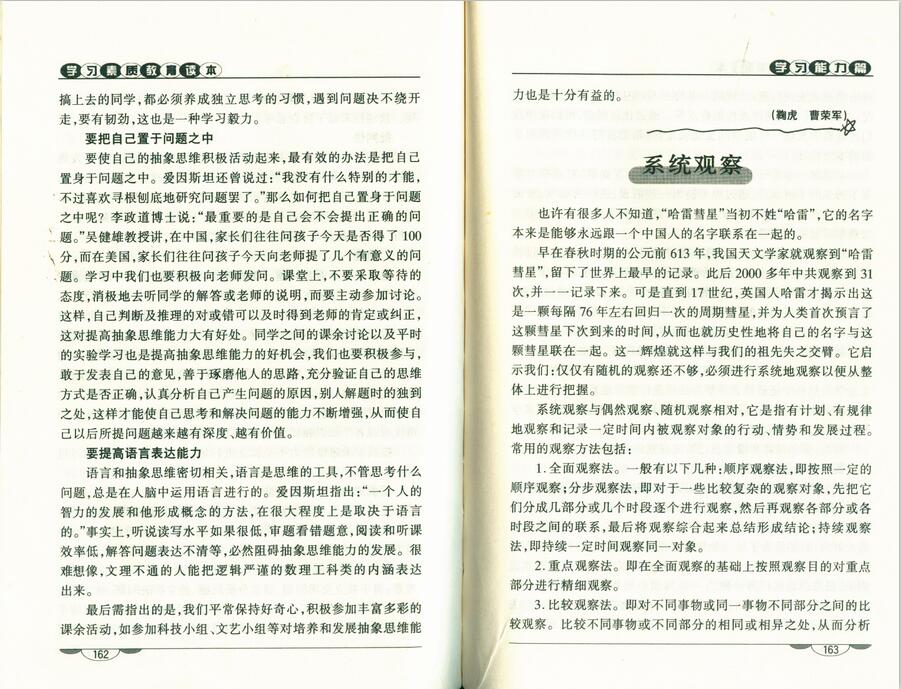 学习素质教育读本
搞上去的同学,都必须养成独立思考的习惯,遇到问题决不绕开
走,要有韧劲,这也是一种学习毅力。
要把自己置于问题之中
要使自己的抽象思维积极活动起来,最有效的办法是把自己
置身于问题之中。爱因斯坦还曾说过:“我没有什么特别的才能,
不过喜欢寻根刨底地研究问题罢了。”那么如何把自己置身于问题
之中呢?李政道博士说:“最重要的是自己会不会提出正确的问
题。”吴健雄教授讲,在中国,家长们往往问孩子今天是否得了 100
分,而在美国,家长们往往问孩子今天向老师提了几个有意义的问
题。学习中我们也要积极向老师发问。课堂上,不要采取等待的
态度,消极地去听同学的解答或老师的说明,而要主动参加讨论。
这样,自己判断及推理的对或错可以及时得到老师的肯定或纠正,
这对提高抽象思维能力大有好处。同学之间的课余讨论以及平时
的实验学习也是提高抽象思维能力的好机会,我们也要积极参与,
敢于发表自己的意见,善于琢磨他人的思路,充分验证自己的思维
方式是否正确,认真分析自己产生问题的原因,别人解题时的独到
之处,这样才能使自己思考和解决问题的能力不断增强,从而使自
己以后所提问题越来越有深度、越有价值。
要提高语言表达能力
语言和抽象思维密切相关,语言是思维的工具,不管思考什么
问题,总是在人脑中运用语言进行的。爱因斯坦指出:“一个人的
智力的发展和他形成概念的方法,在很大程度上是取决于语言
的。”事实上,听说读写水平如果很低,审题看错题意,阅读和听课
效率低,解答问题表达不清等,必然阻碍抽象思维能力的发展。很
难想像,文理不通的人能把逻辑严谨的数理工科类的内涵表达
出来。
最后需指出的是,我们平常保持好奇心,积极参加丰富多彩的
课余活动,如参加科技小组、文艺小组等对培养和发展抽象思维能
162
学习能力篇
力也是十分有益的。
(鞠虎 曹荣军)
系统观察
也许有很多人不知道,“哈雷彗星”当初不姓“哈雷”,它的名字
本来是能够永远跟一个中国人的名字联系在一起的。
早在春秋时期的公元前 613 年,我国天文学家就观察到“哈雷
彗星”,留下了世界上最早的记录。此后 2000 多年中共观察到 31
次,并一一记录下来。可是直到 17 世纪,英国人哈雷才揭示出这
是一颗每隔 76 年左右回归一次的周期彗星,并为人类首次预言了
这颗彗星下次到来的时间,从而也就历史性地将自己的名字与这
颗彗星联在一起。这一辉煌就这样与我们的祖先失之交臂。它启
示我们:仅仅有随机的观察还不够,必须进行系统地观察以便从整
体上进行把握。
系统观察与偶然观察、随机观察相对,它是指有计划、有规律
地观察和记录一定时间内被观察对象的行动、情势和发展过程。
常用的观察方法包括:
1. 全面观察法。一般有以下几种:顺序观察法,即按照一定的
顺序观察;分步观察法,即对于一些比较复杂的观察对象,先把它
们分成几部分或几个时段逐个进行观察,然后再观察各部分或各
时段之间的联系,最后将观察综合起来总结形成结论;持续观察
法,即持续一定时间观察同一对象。
2. 重点观察法。即在全面观察的基础上按照观察目的对重点
部分进行精细观察。
3. 比较观察法。即对不同事物或同一事物不同部分之间的比
较观察。比较不同事物或不同部分的相同或相异之处,从而分析
163